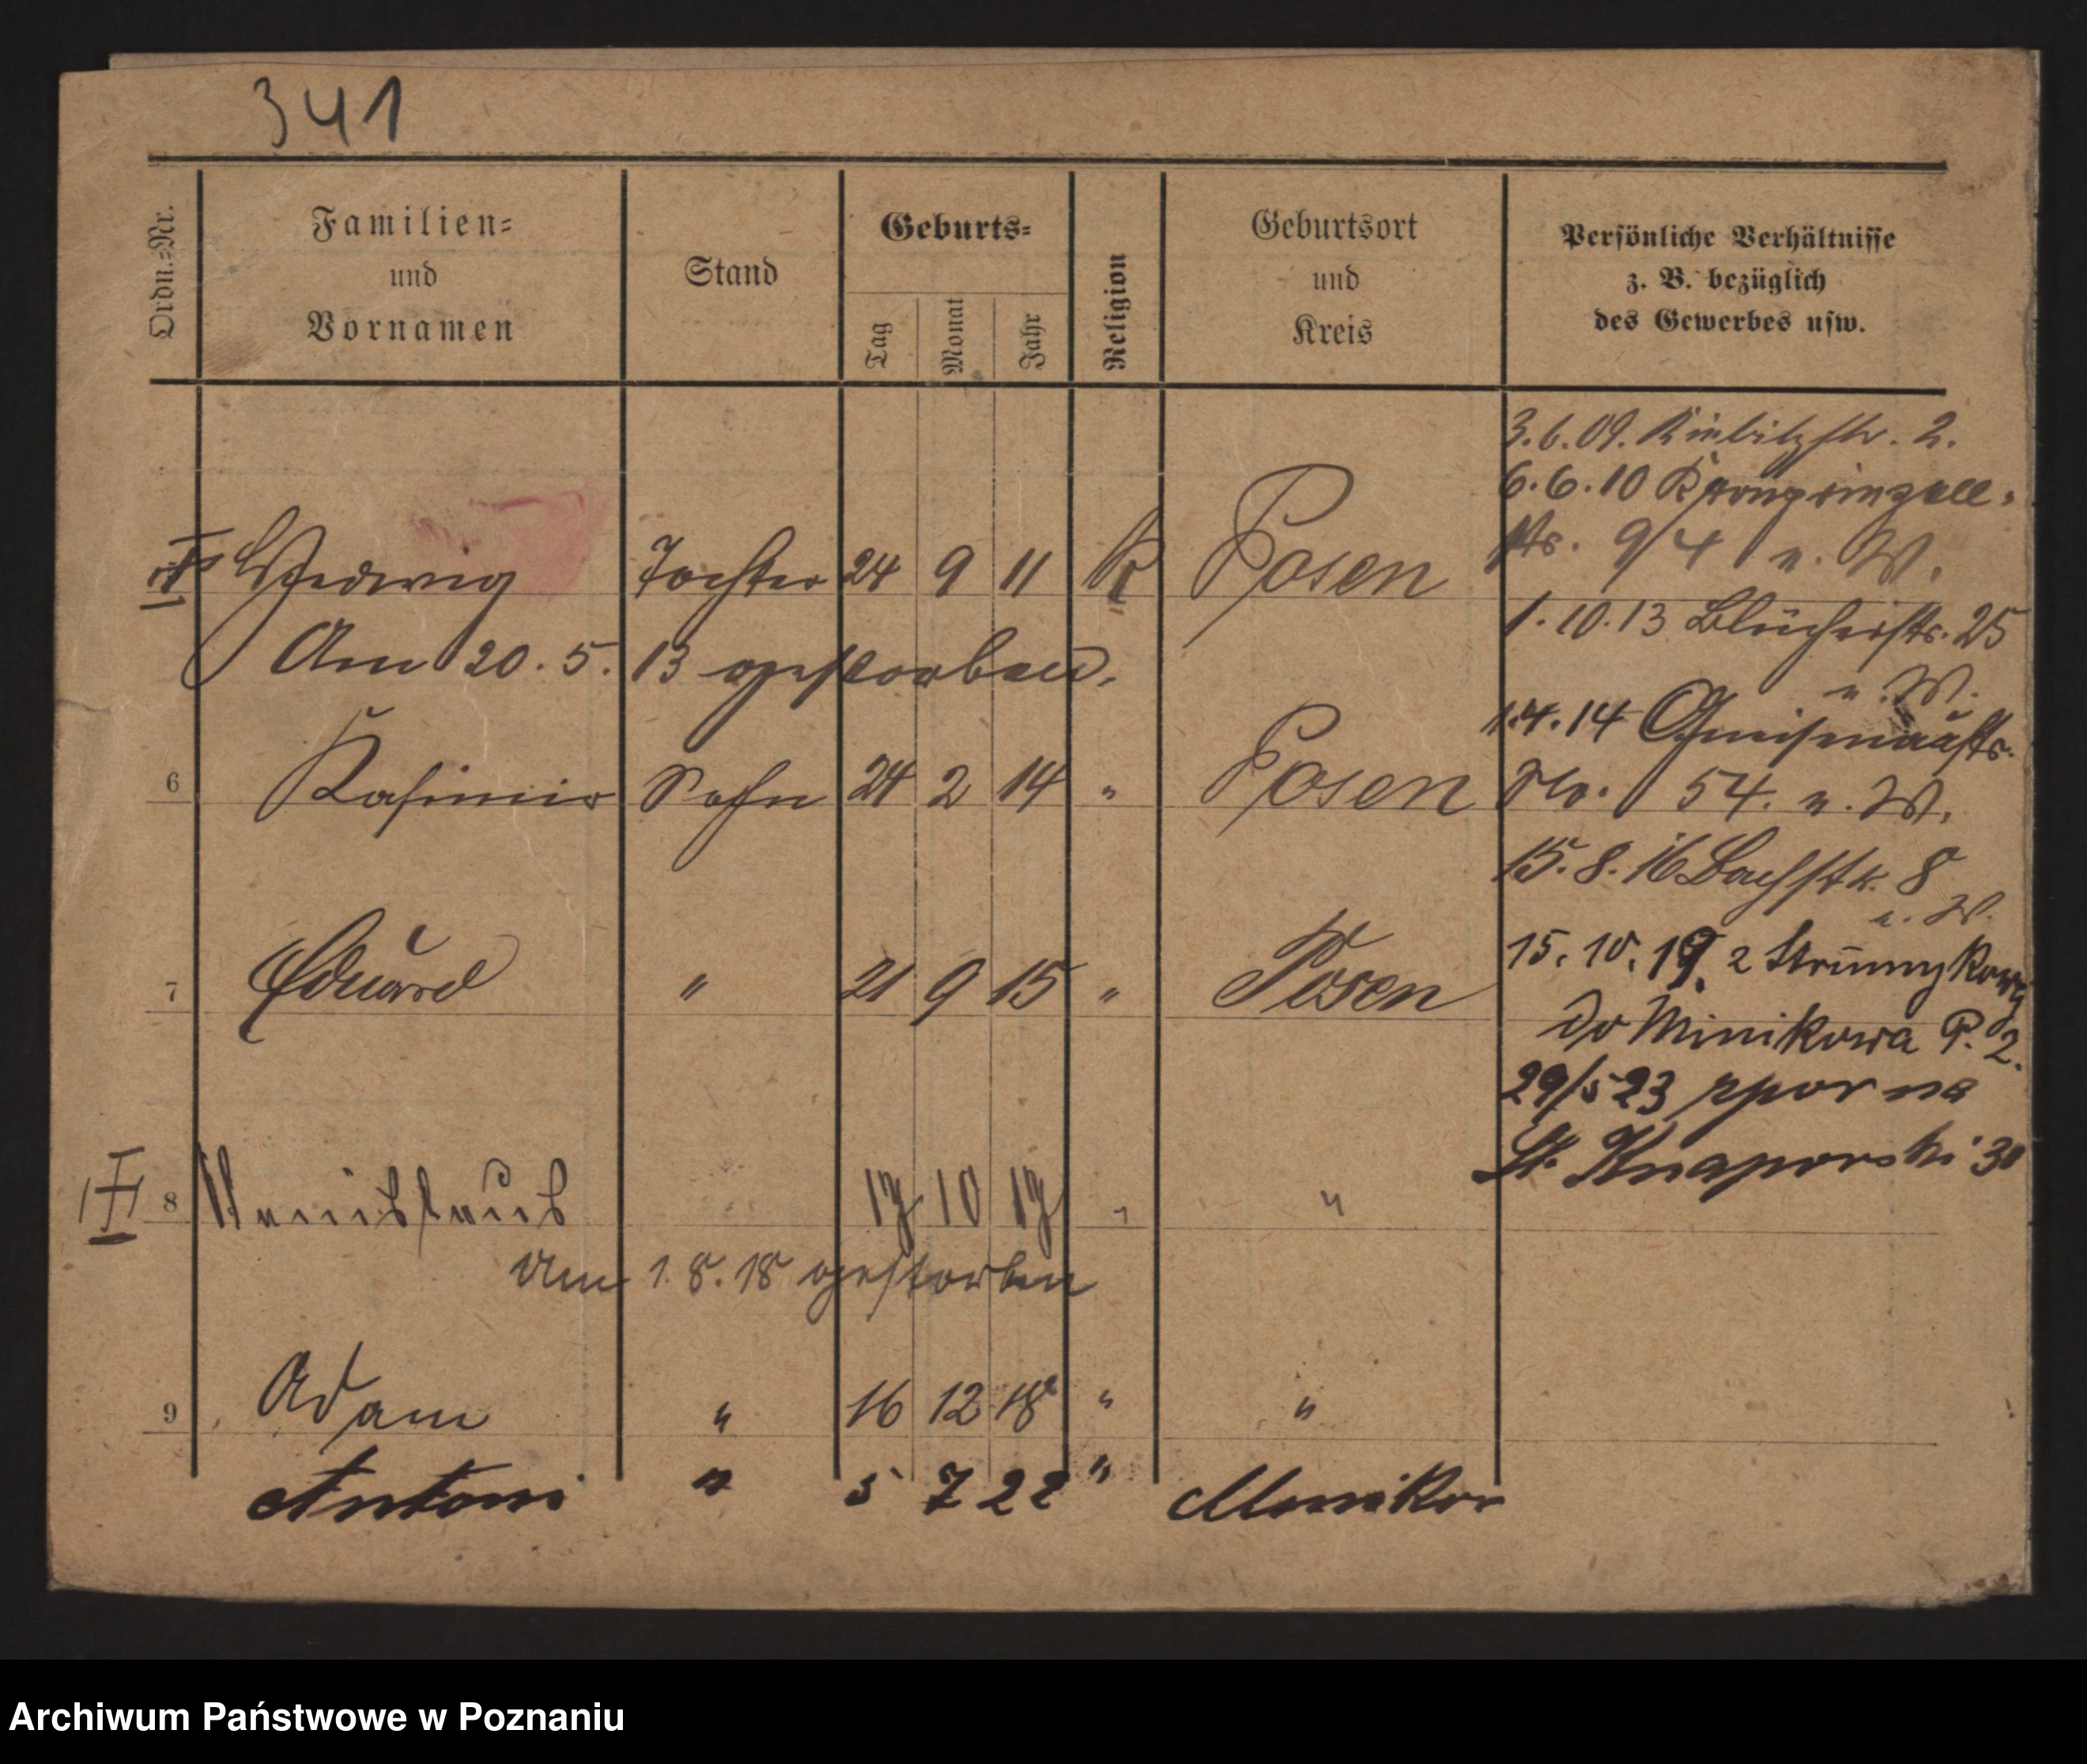 341
Ordn.-Nr. Familien- und Vornamen Stand Geburts- Tag Monat Jahr Religion Geburtsort und Kreis Persönliche Verhältnisse z. B. bezüglich des Gewerbes usw.
3.6.09. Kiebitzstr. 2.
6.6.10 Kronprinzall.
Hedwig Tochter 24 9 11 K Posen
str. 94 u. W.
1.10.13 Blücherstr. 25
u. W.
Am 20.5.13 gestorben.
1.4.14 Gneisenaustr.
6 Kasimir Sohn 24 2 14 " Posen
Nr. 54. u. W.
15.8.16 Bachstr. 8
u. W.
7 Eduard " 21 9 15 " Posen
15.10.19. z Strumykowej
do Minikowa P. 2.
29/5 23 na
30
8 17 10 17 " "
Am 1.8.18 gestorben
9 Adam " 16 12 18 " "
Antoni " 5 7 22 " Minikow
Archiwum Państwowe w Poznaniu